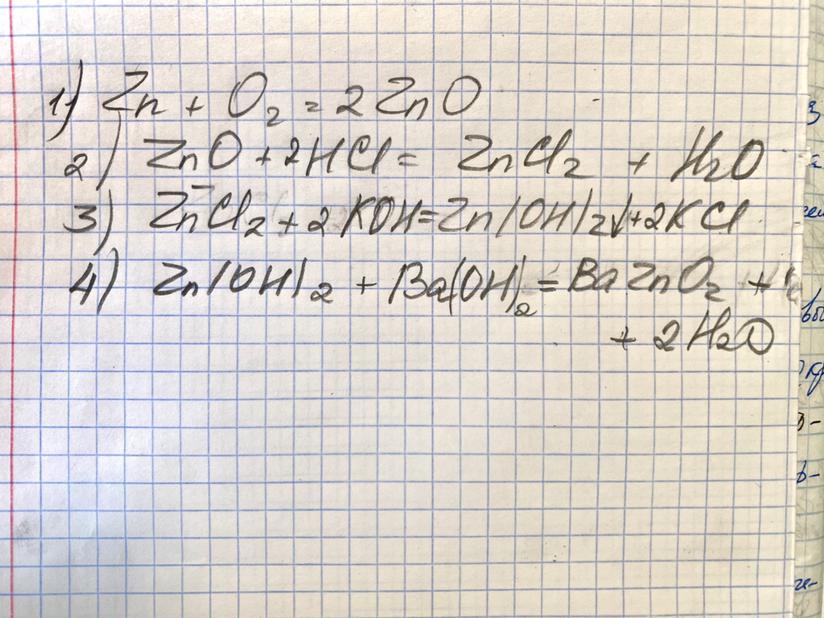 1) Zn + O₂ = 2 ZnO
2) ZnO + 2HCl = ZnCl₂ + H₂O
3) ZnCl₂ + 2 KOH = Zn(OH)₂↓ + 2KCl
4) Zn(OH)₂ + Ba(OH)₂ = BaZnO₂ +
+ 2H₂O